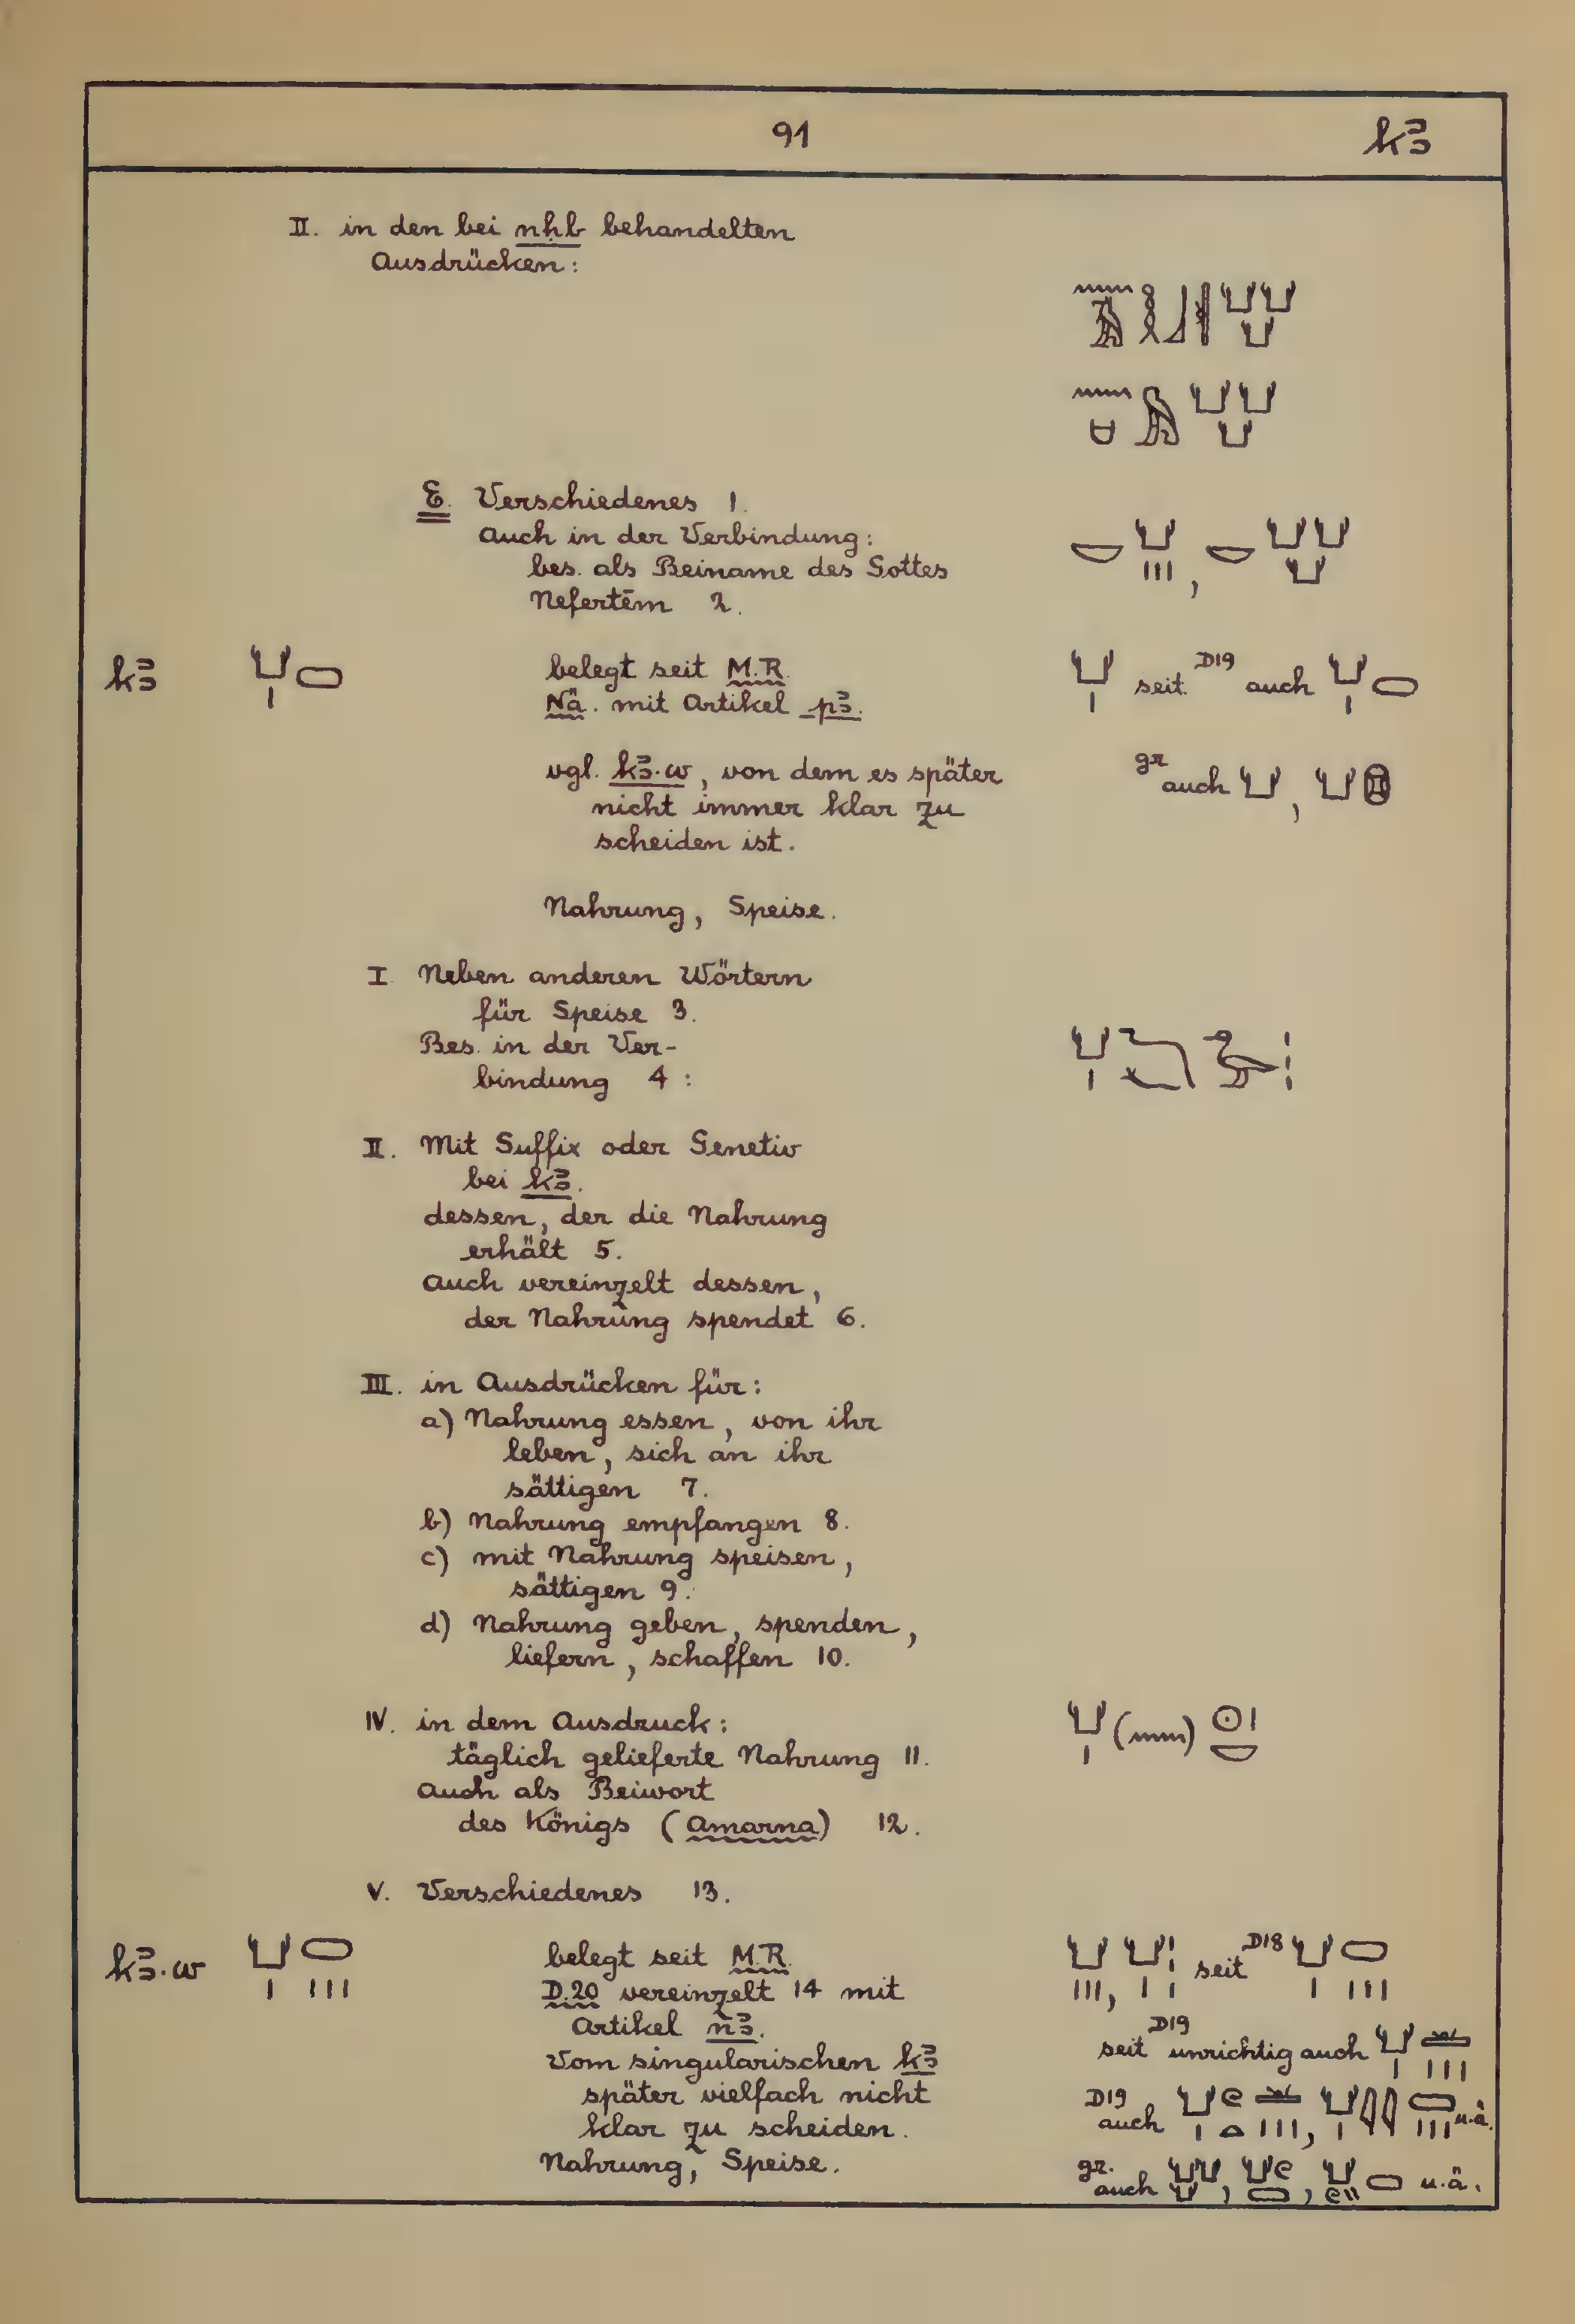 91 kꜣ
II. in den bei nḥb behandelten
Ausdrücken:
E. Verschiedenes 1.
Auch in der Verbindung:
bes. als Beiname des Gottes
Nefertēm 2.
kꜣ belegt seit M.R. seit D19 auch
Nä. mit Artikel pꜣ.
vgl. kꜣ.w, von dem es später gr auch
nicht immer klar zu
scheiden ist.
Nahrung, Speise.
I. Neben anderen Wörtern
für Speise 3.
Bes. in der Ver-
bindung 4:
II. Mit Suffix oder Genetiv
bei kꜣ.
dessen, der die Nahrung
erhält 5.
Auch vereinzelt dessen,
der Nahrung spendet 6.
III. in Ausdrücken für:
a) Nahrung essen, von ihr
leben, sich an ihr
sättigen 7.
b) Nahrung empfangen 8.
c) mit Nahrung speisen,
sättigen 9.
d) Nahrung geben, spenden,
liefern, schaffen 10.
IV. in dem Ausdruck:
täglich gelieferte Nahrung 11.
Auch als Beiwort
des Königs (Amarna) 12.
V. Verschiedenes 13.
kꜣ.w belegt seit M.R. seit D18
D.20 vereinzelt 14 mit
Artikel nꜣ.
seit D19 unrichtig auch
Vom singularischen kꜣ
später vielfach nicht D19 auch u.ä.
klar zu scheiden.
Nahrung, Speise. gr. auch u.ä.